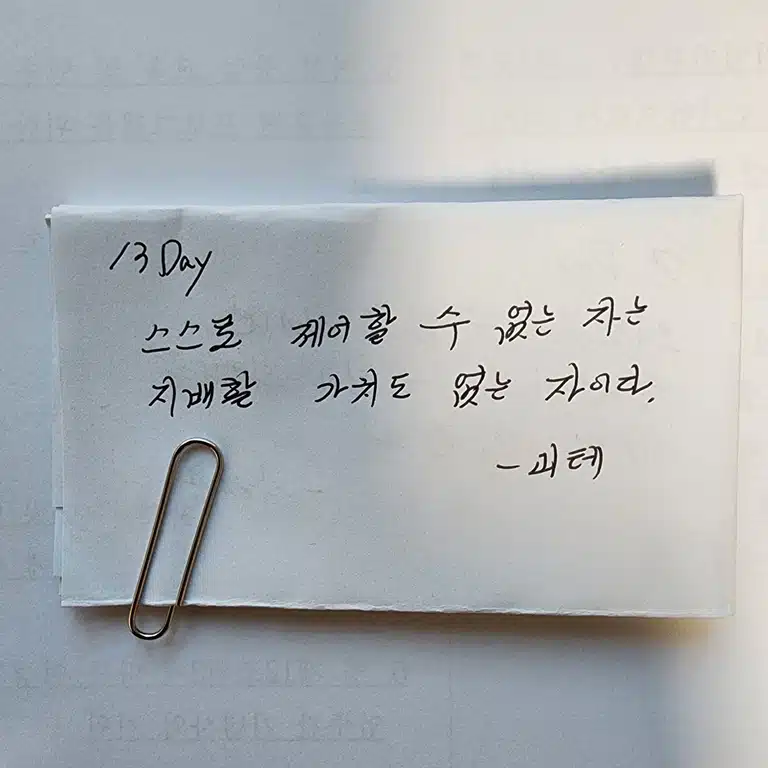 13 Day
스스로 제어할 수 없는 자는
지배할 가치도 없는 자이다.
- 괴테